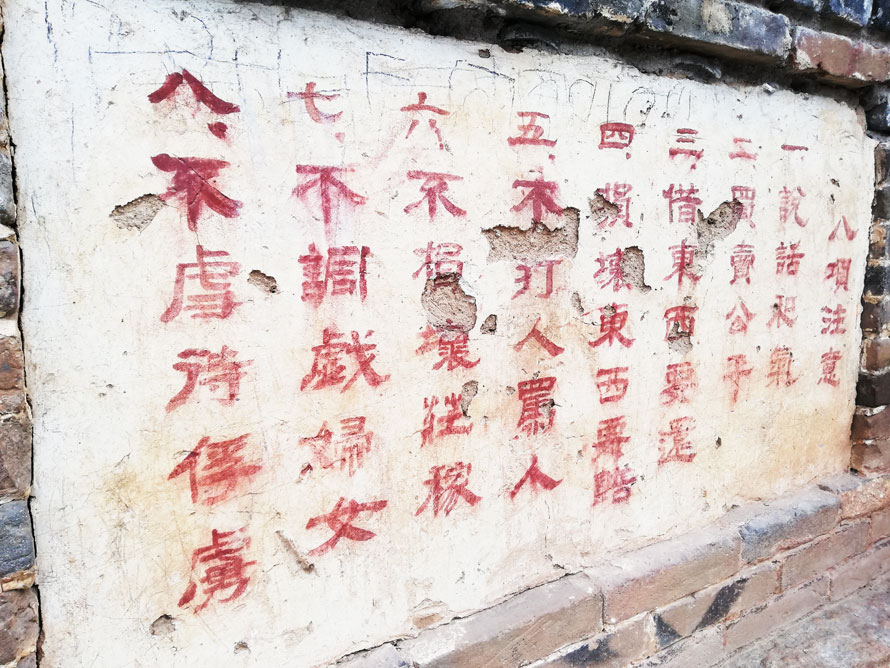 八項注意
一、說話和氣
二、買賣公平
三、借東西要還
四、損壞東西要賠
五、不打人罵人
六、不損壞莊稼
七、不調戲婦女
八、不虐待俘虜